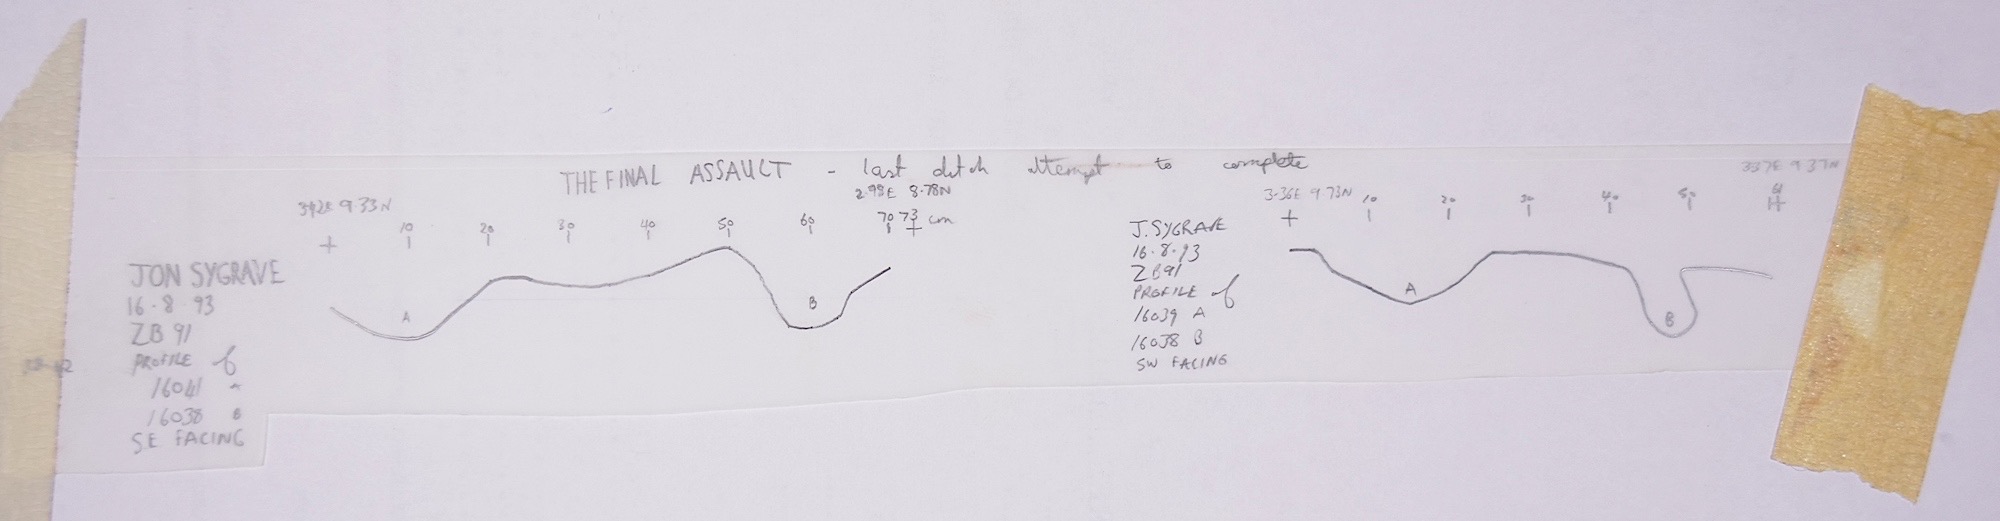 THE FINAL ASSAULT - last ditch attempt to complete
342E 9.33N
10 20 30 40 50 60 70 73 cm
2.98E 8.78N
JON SYGRAVE
16.8.93
ZB 91
PROFILE of
16041 A
16038 B
S.E FACING
A
B
3.36E 9.73N
337E 9.37N
10 20 30 40 50 61
J. SYGRAVE
16.8.93
ZB91
PROFILE of
16039 A
16038 B
SW FACING
A
B